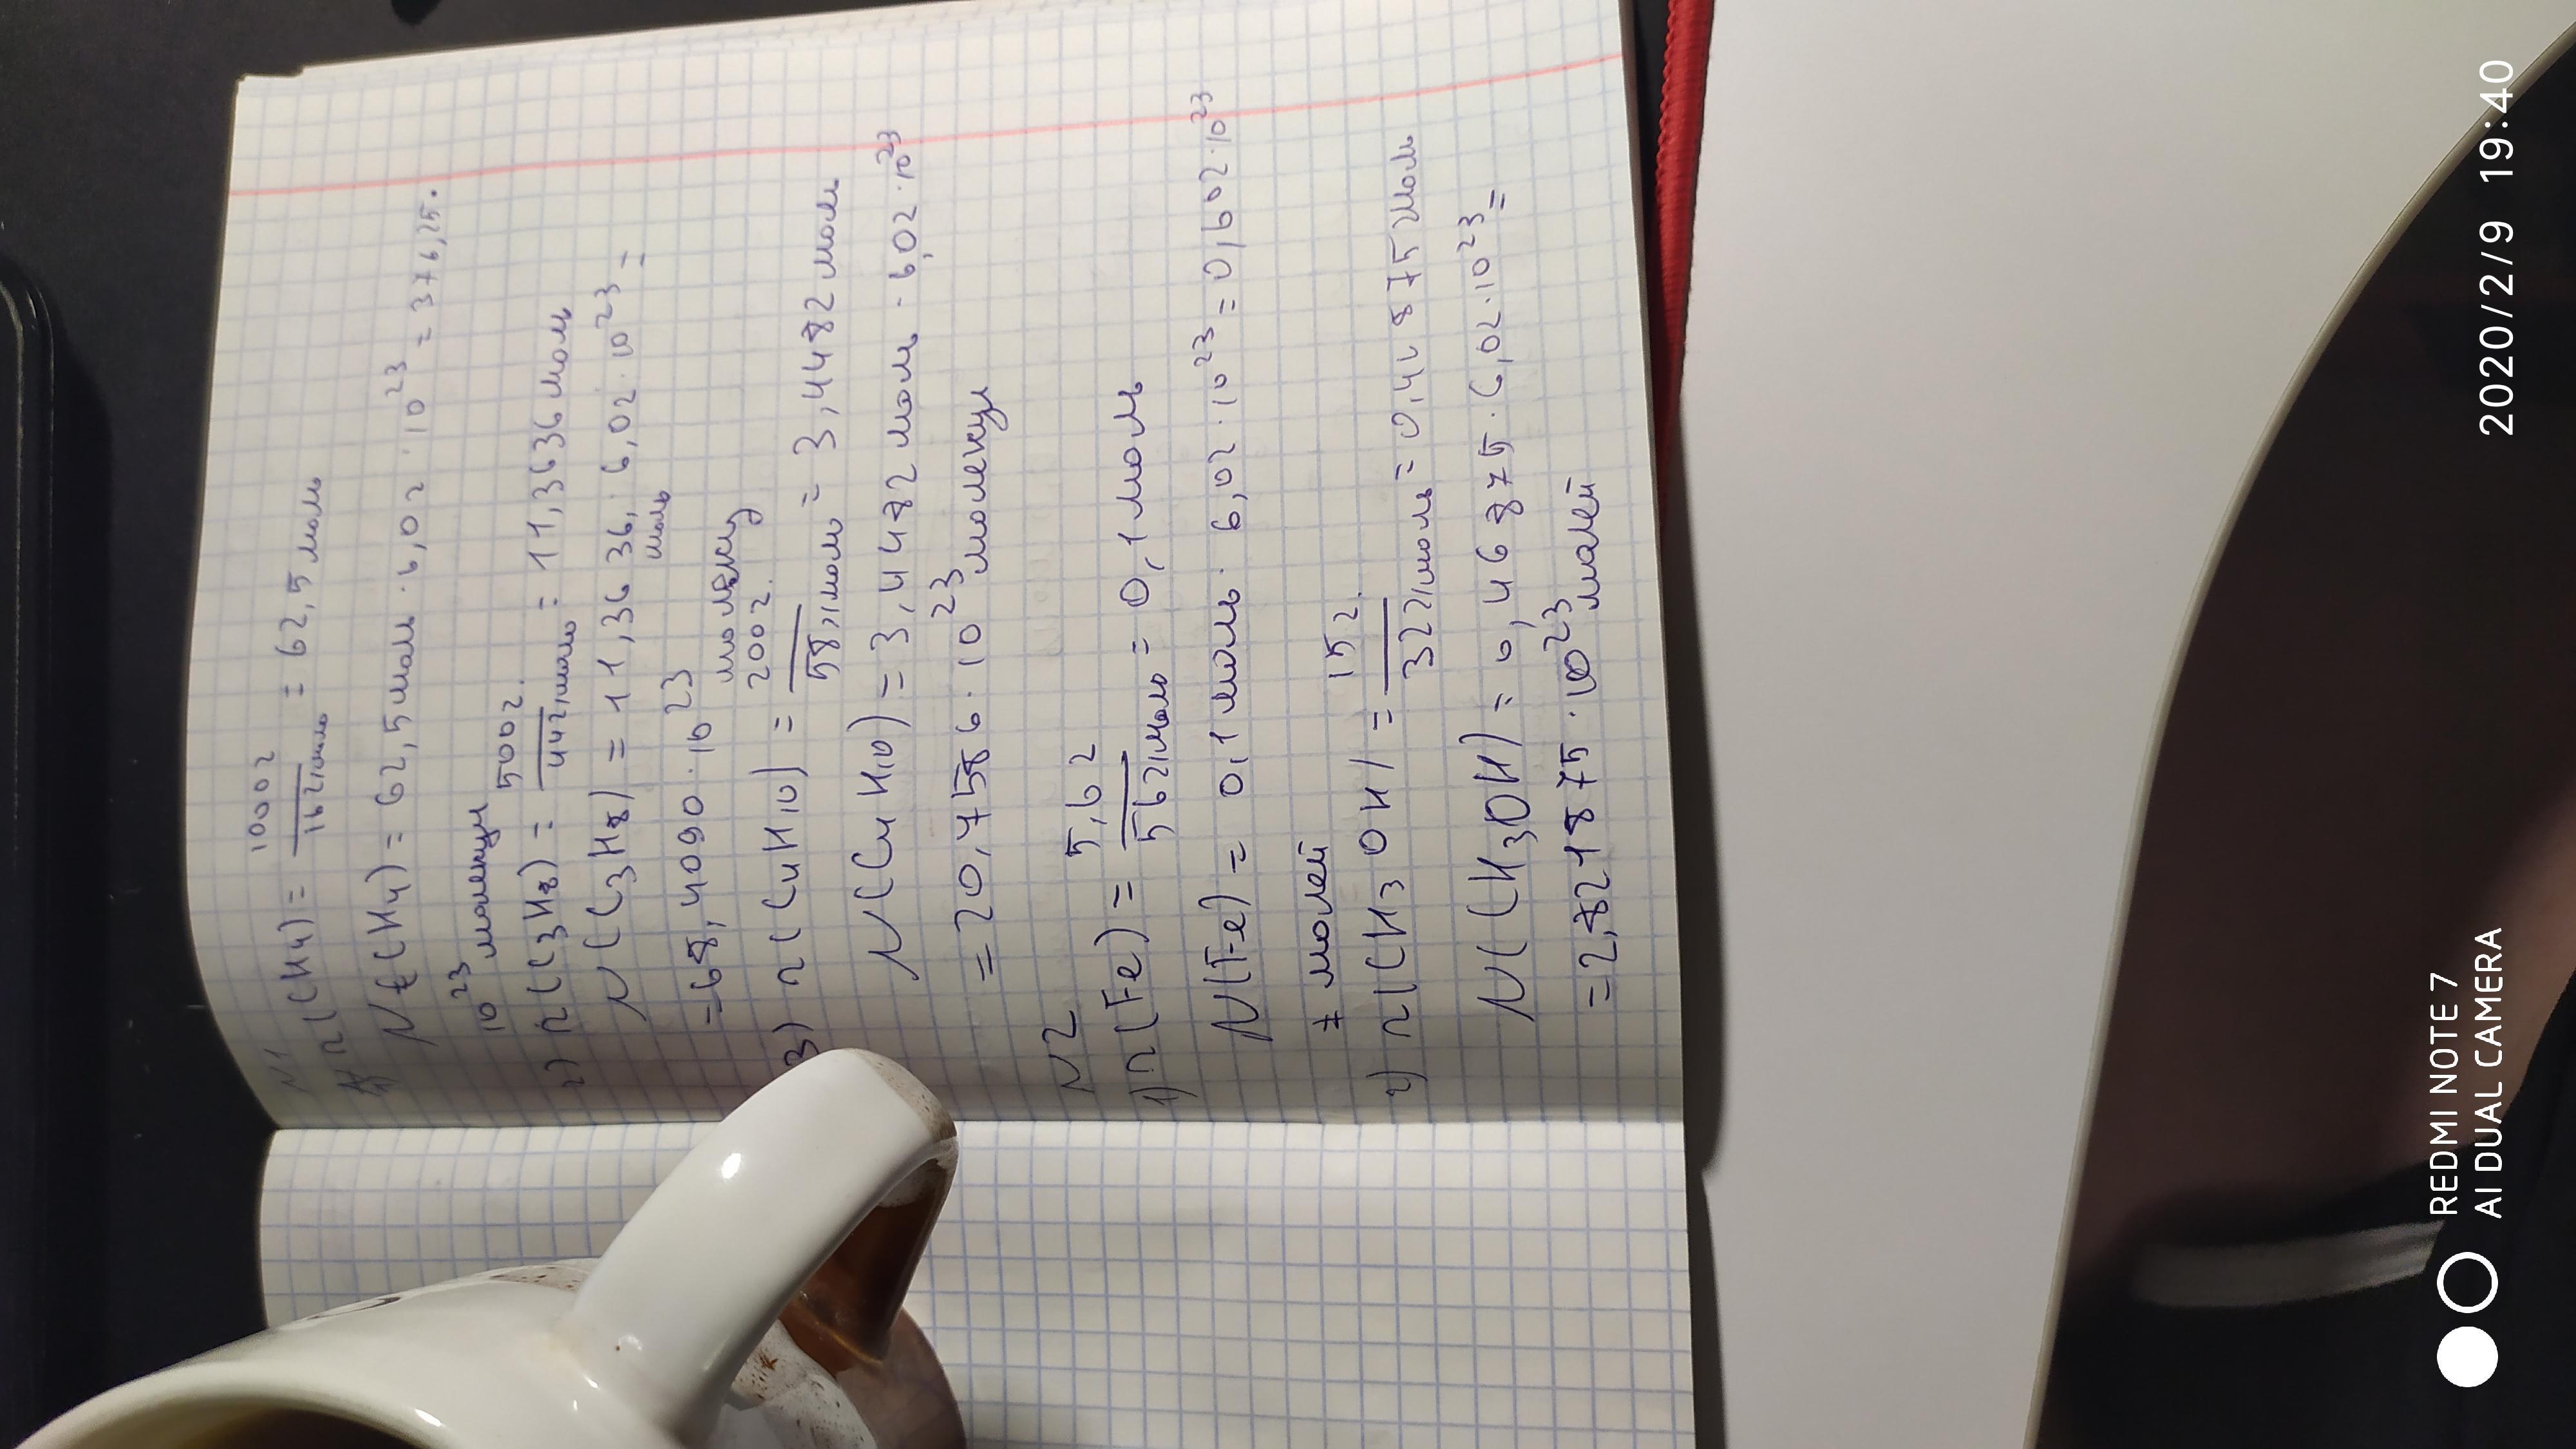 N1
n(CH4) = 1000г / 16г/моль = 62,5 моль
N(CH4) = 62,5 моль · 6,02 · 10^23 = 376,25 ·
10^23 молекул
2) n(C3H8) = 500г. / 44г/моль = 11,3636 моль
N(C3H8) = 11,3636 моль · 6,02 · 10^23 =
= 68,4090 · 10^23 молекул
3) n(C4H10) = 200г. / 58г/моль = 3,4482 моль
N(C4H10) = 3,4482 моль · 6,02 · 10^23
= 20,7586 · 10^23 молекул
N2
1) n(Fe) = 5,6г / 56г/моль = 0,1 моль
N(Fe) = 0,1 моль · 6,02 · 10^23 = 0,602 · 10^23
молей
2) n(CH3OH) = 15г. / 32г/моль = 0,46875 моль
N(CH3OH) = 0,46875 · 6,02 · 10^23 =
= 2,821875 · 10^23 молей
REDMI NOTE 7
AI DUAL CAMERA
2020/2/9 19:40